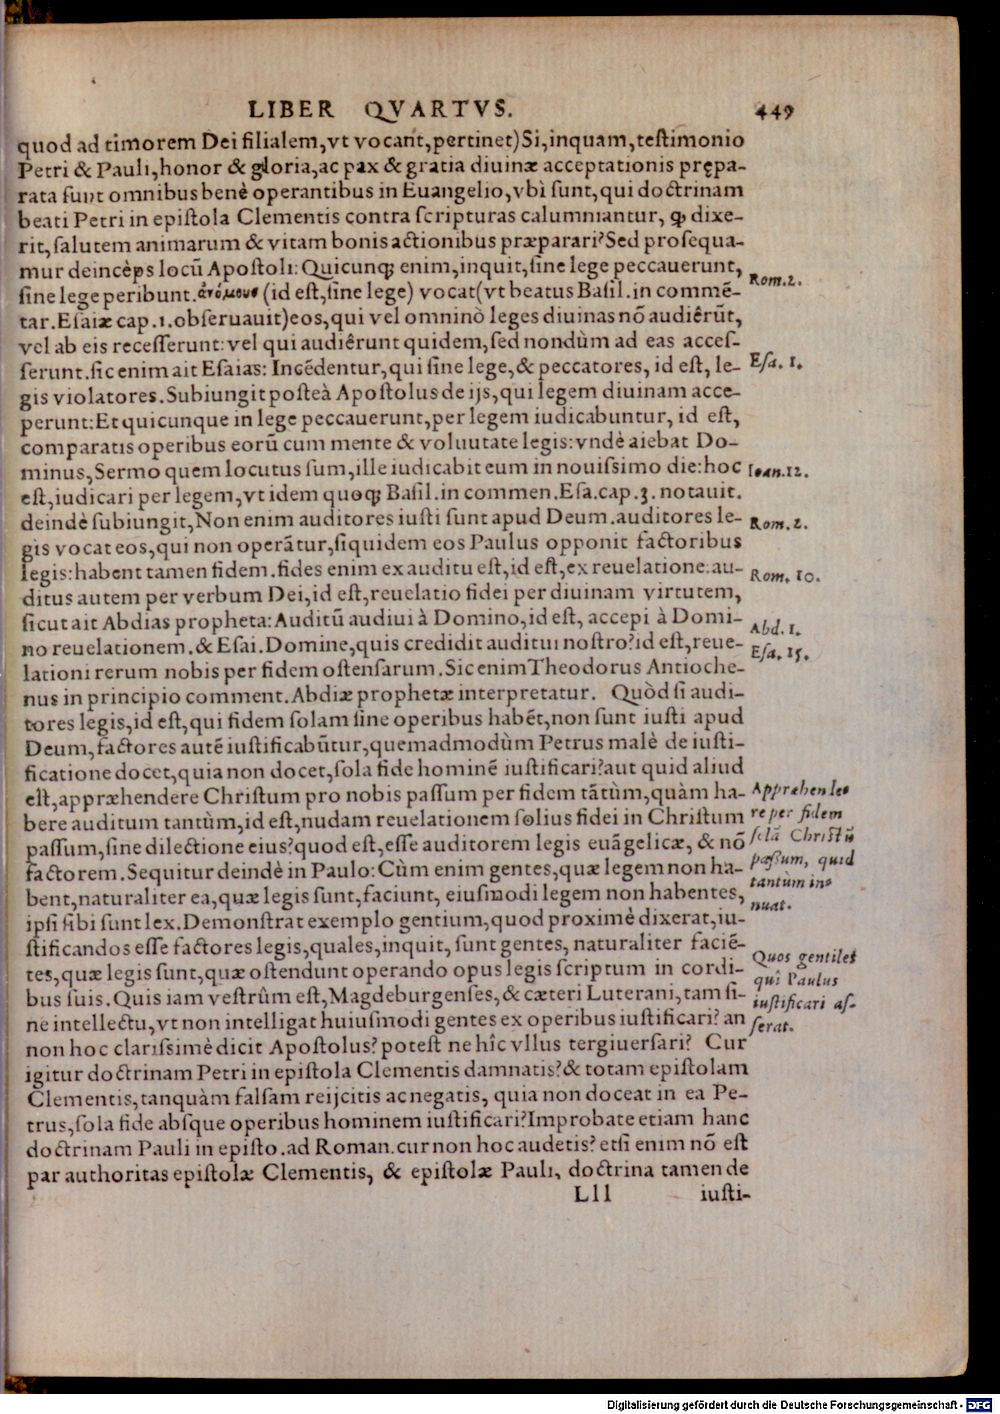 LIBER QVARTVS. 449
quod ad timorem Dei filialem,vt vocant,pertinet)Si,inquam,teſtimonio
Petri & Pauli,honor & gloria,ac pax & gratia diuinæ acceptationis prępa-
rata ſunt omnibus benè operantibus in Euangelio,vbì ſunt,qui doctrinam
beati Petri in epiſtola Clementis contra ſcripturas calumniantur, ꝙ dixe-
rit,ſalutem animarum & vitam bonis actionibus præparari?Sed proſequa-
mur deincèps locū Apoſtoli: Quicunqꝫ enim,inquit,ſine lege peccauerunt,
Rom.2.
ſine lege peribunt.ἀνόμους (id eſt,ſine lege) vocat(vt beatus Baſil.in commē-
tar.Eſaiæ cap.1.obſeruauit)eos,qui vel omninò leges diuinas nō audiêrūt,
vel ab eis receſſerunt:vel qui audiêrunt quidem,ſed nondùm ad eas acceſ-
ſerunt.ſic enim ait Eſaias: Incēdentur,qui ſine lege,& peccatores, id eſt, le-
Eſa. 1.
gis violatores.Subiungit poſteà Apoſtolus de ijs,qui legem diuinam acce-
perunt:Et quicunque in lege peccauerunt,per legem iudicabuntur, id eſt,
comparatis operibus eorū cum mente & voluutate legis:vndè aiebat Do-
minus,Sermo quem locutus ſum,ille iudicabit eum in nouiſsimo die:hoc
Ioan.12.
eſt,iudicari per legem,vt idem quoqꝫ Baſil.in commen.Eſa.cap.3.notauit.
deindè ſubiungit,Non enim auditores iuſti ſunt apud Deum.auditores le-
Rom.2.
gis vocat eos,qui non operātur,ſiquidem eos Paulus opponit factoribus
legis:habent tamen fidem.fides enim ex auditu eſt,id eſt,ex reuelatione:au-
Rom. 10.
ditus autem per verbum Dei,id eſt,reuelatio fidei per diuinam virtutem,
ſicut ait Abdias propheta:Auditū audiui à Domino,id eſt, accepi à Domi-
Abd.1.
no reuelationem.& Eſai.Domine,quis credidit auditui noſtro?id eſt,reue-
Eſa.15.
lationi rerum nobis per fidem oſtenſarum.Sic enim Theodorus Antioche-
nus in principio comment.Abdiæ prophetæ interpretatur. Quòd ſi audi-
tores legis,id eſt,qui fidem ſolam ſine operibus habēt,non ſunt iuſti apud
Deum,factores autē iuſtificabūtur,quemadmodùm Petrus malè de iuſti-
ficatione docet,quia non docet,ſola fide hominē iuſtificari?aut quid aliud
eſt,appræhendere Chriſtum pro nobis paſſum per fidem tātùm,quàm ha-
bere auditum tantùm,id eſt,nudam reuelationem ſolius fidei in Chriſtum
paſſum,ſine dilectione eius?quod eſt,eſſe auditorem legis euāgelicæ, & nō
factorem.Sequitur deindè in Paulo:Cùm enim gentes,quæ legem non ha-
bent,naturaliter ea,quæ legis ſunt,faciunt, eiuſmodi legem non habentes,
Appræhende
re per fidem
ſolā Chriſtū
paſſum, quid
tantùm inſi
nuat.
ipſi ſibi ſunt lex.Demonſtrat exemplo gentium,quod proximè dixerat,iu-
ſtificandos eſſe factores legis,quales,inquit, ſunt gentes, naturaliter faciē-
tes,quæ legis ſunt,quæ oſtendunt operando opus legis ſcriptum in cordi-
bus ſuis.Quis iam veſtrûm eſt,Magdeburgenſes,& cæteri Luterani,tam ſi-
ne intellectu,vt non intelligat huiuſmodi gentes ex operibus iuſtificari? an
Quos gentiles
quî Paulus
iuſtificari aſ-
ſerat.
non hoc clariſsimè dicit Apoſtolus? poteſt ne hîc vllus tergiuerſari? Cur
igitur doctrinam Petri in epiſtola Clementis damnatis?& totam epiſtolam
Clementis,tanquàm falſam reijcitis ac negatis, quia non doceat in ea Pe-
trus,ſola fide abſque operibus hominem iuſtificari?Improbate etiam hanc
doctrinam Pauli in epiſto.ad Roman.cur non hoc audetis? etſi enim nō eſt
par authoritas epiſtolæ Clementis, & epiſtolæ Pauli, doctrina tamen de
Lll iuſti-
Digitalisierung gefördert durch die Deutsche Forschungsgemeinschaft - DFG